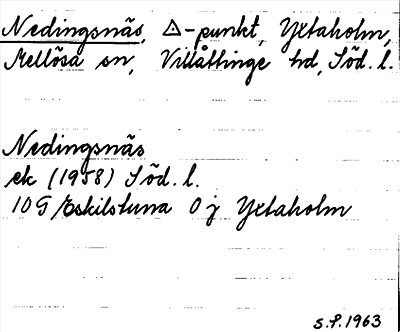 Nedingsnäs, △-punkt, Yxtaholm,
Mellösa sn, Villåttinge hd, Söd. l.
Nedingsnäs
ek (1958) Söd. l.
10G/Eskilstuna 0j Yxtaholm
S.P. 1963